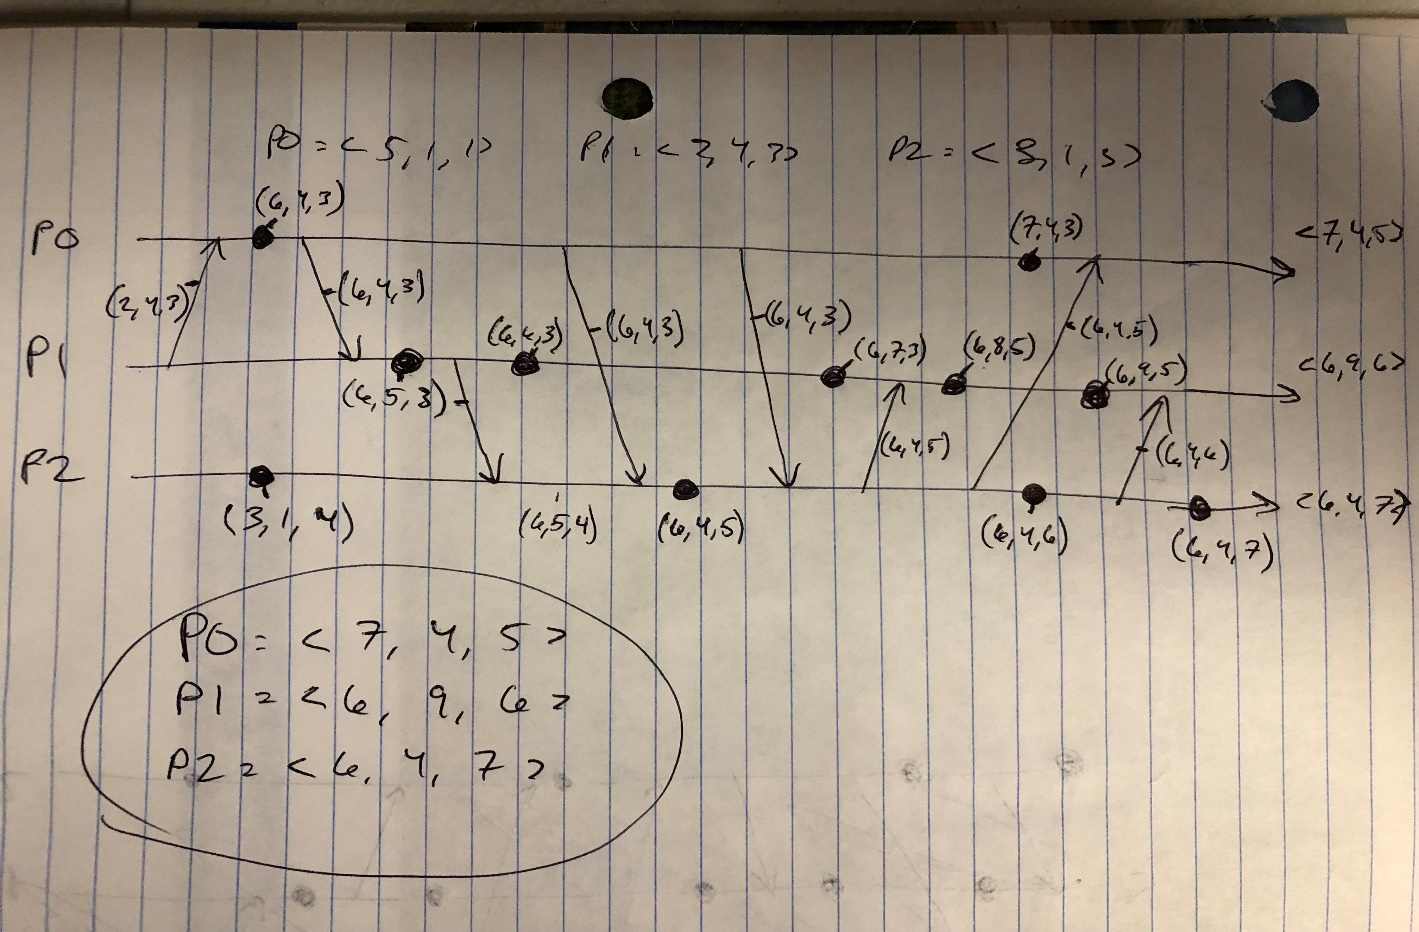 P0 = < 5, 1, 1> P1 = < 2, 4, 3> P2 = < 3, 1, 3>
(6,4,3)
P0 (7,4,3) <7,4,5>
(2,4,3) (6,4,3) (6,4,3) (6,4,3) (6,4,5)
P1 (6,6,3) (6,7,3) (6,8,5) (6,9,5) <6,9,6>
(6,5,3) (6,4,5) (6,4,6)
P2 <6,4,7>
(3,1,4) (6,5,4) (6,4,5) (6,4,6) (6,4,7)
P0 = < 7, 4, 5 >
P1 = < 6, 9, 6 >
P2 = < 6, 4, 7 >